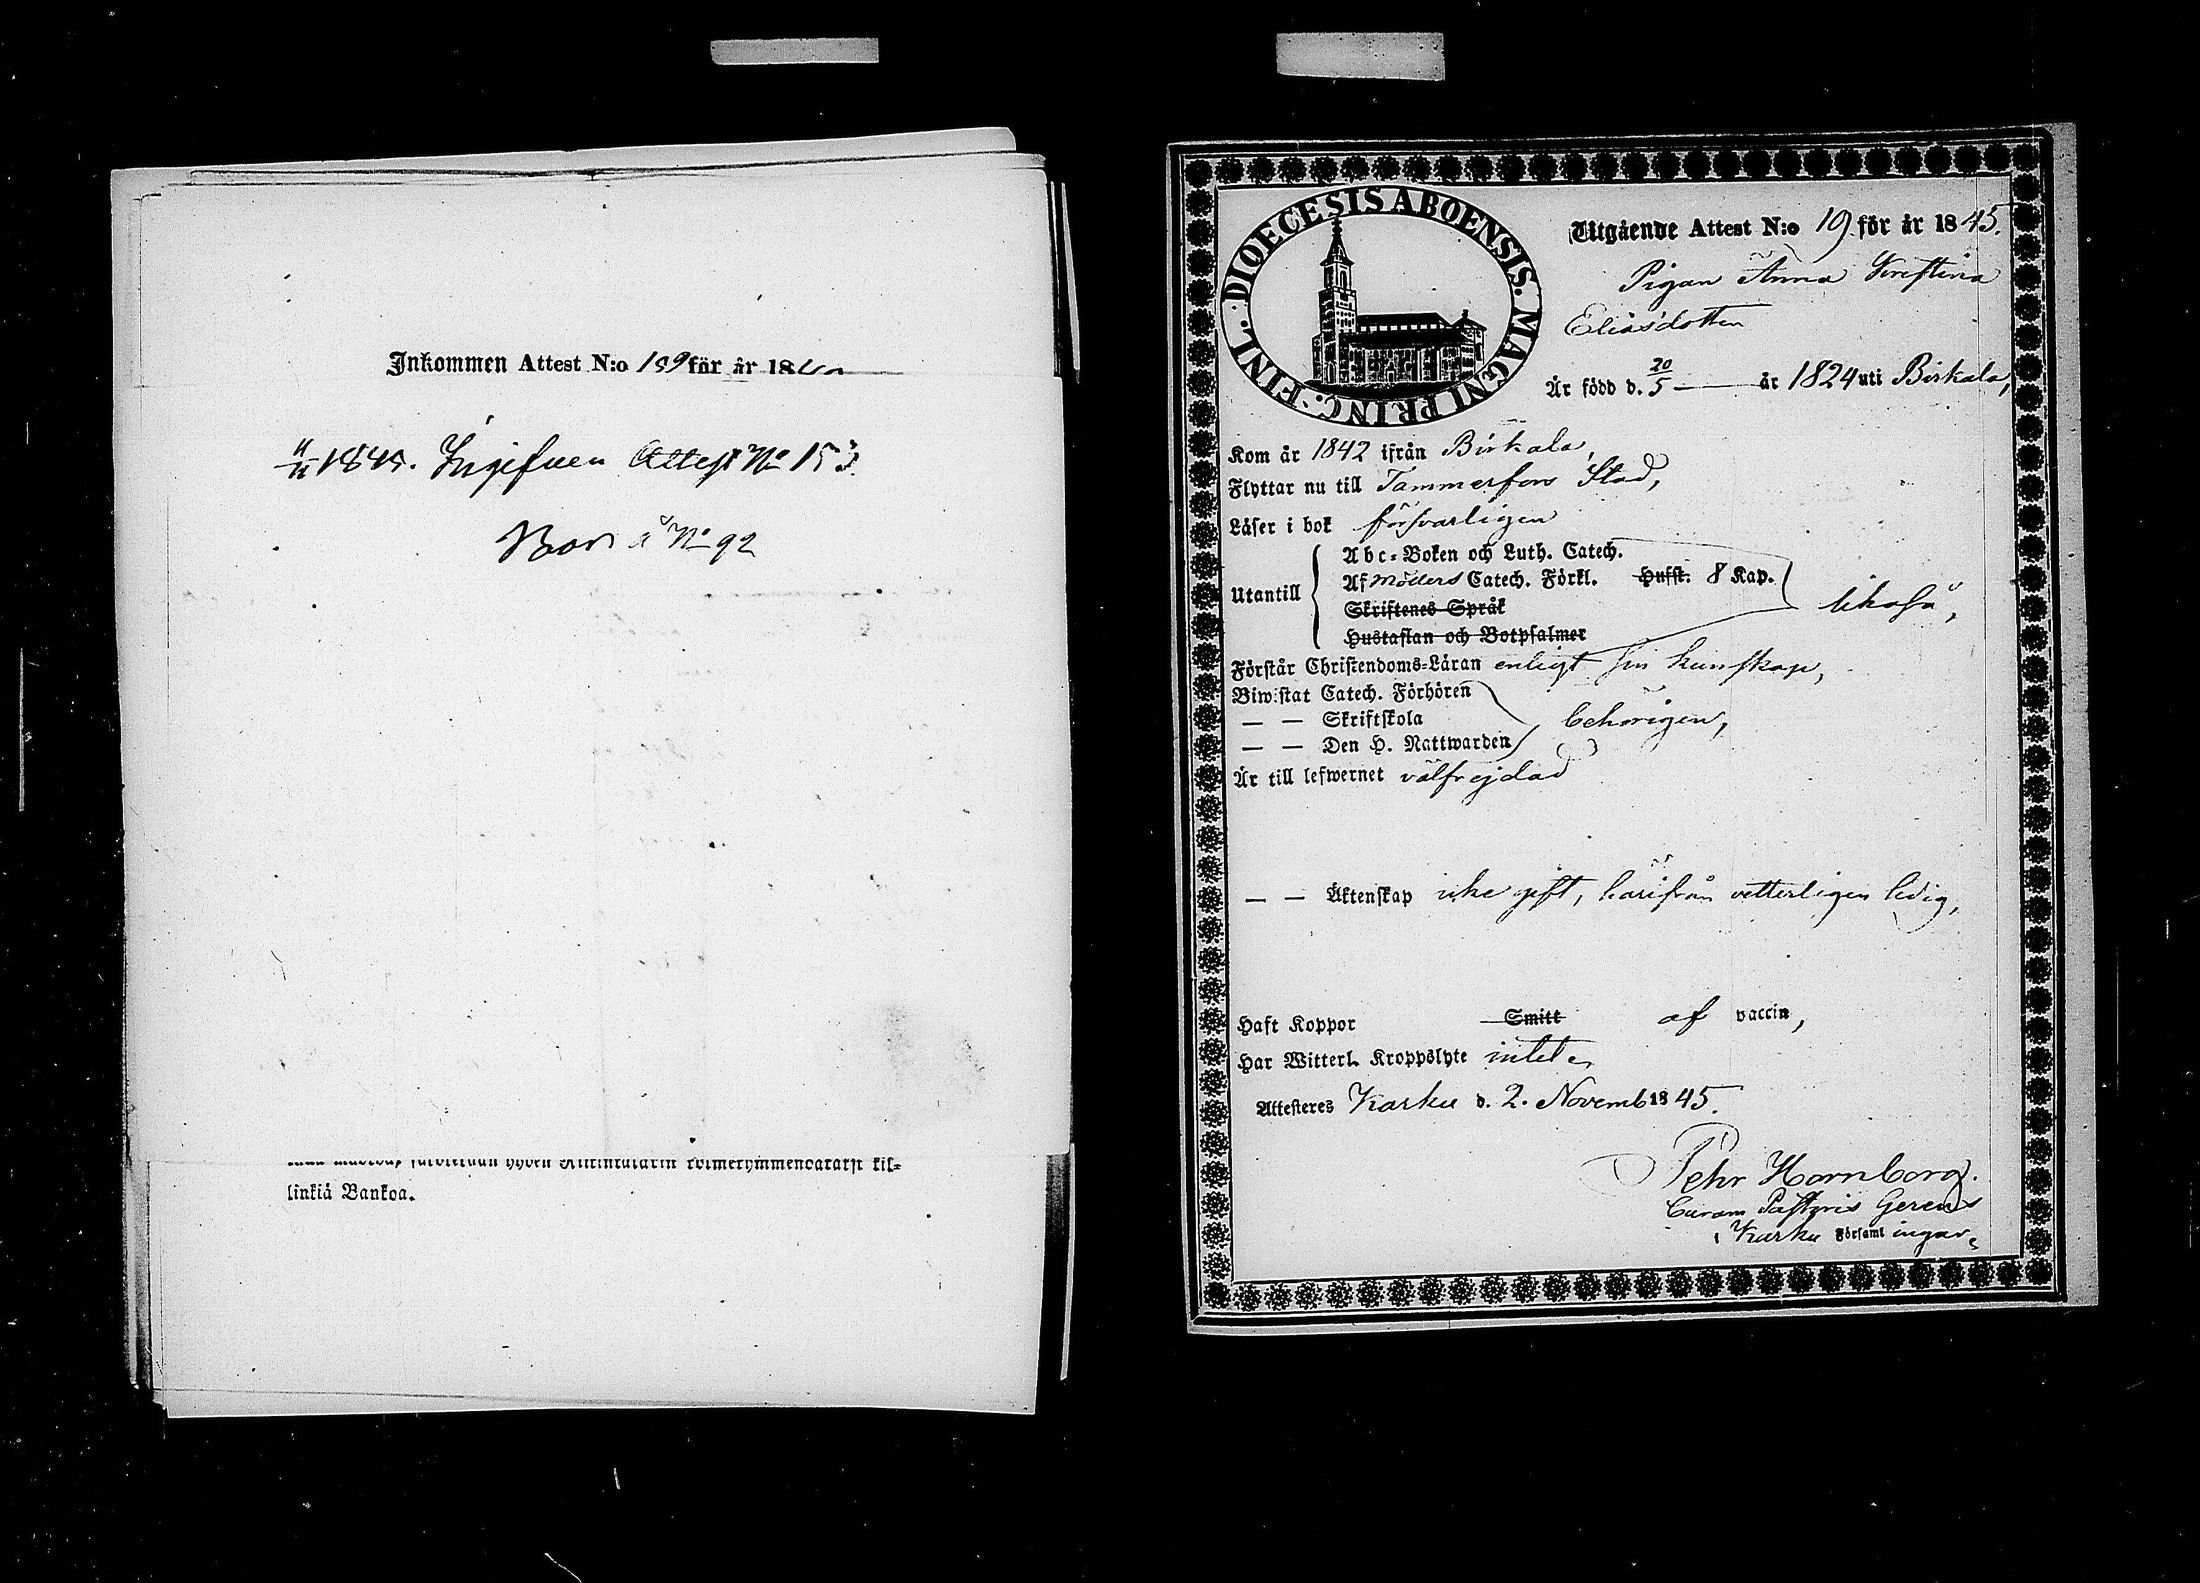 Inkommen Attest N:o 159 för år 18
11/11 1845. Ingifven Attest No 153.
Bor å No 92
linkiä Bankoa.
DIOECESIS ABOENSIS. MAGNI PRINC. FINL.
Utgående Attest N:o 19 för år 1845.
Pigan Anna Kreftina
Eliasdotter
Är född d. 20/5 — år 1824 uti Birkala,
Kom år 1842 ifrån Birkala,
Flyttar nu till Tammerfors Stad,
Läser i bok försvarligen
Utantill
Abc-Boken och Luth. Catech.
Af Möllers Catech. Förkl. Hufst. 8 Kap.
Skriftenes Språk
Hustaflan och Botpsalmer
likaså,
Förstår Christendoms-Läran enligt sin kunskap,
Biwistat Catech. Förhören
— — Skriftskola
— — Den H. Nattwarden
behörigen,
Är till lefwernet välfrejdad
— — Äktenskap icke gift, härifrån vetterligen ledig,
Haft Koppor Smitt af vaccin,
Har Witterl. Kroppslyte intet
Attesteres Karku d. 2. Novemb 1845.
Pehr Hornborg.
Curam Pastoris Gerens
i Karku Församl ingar